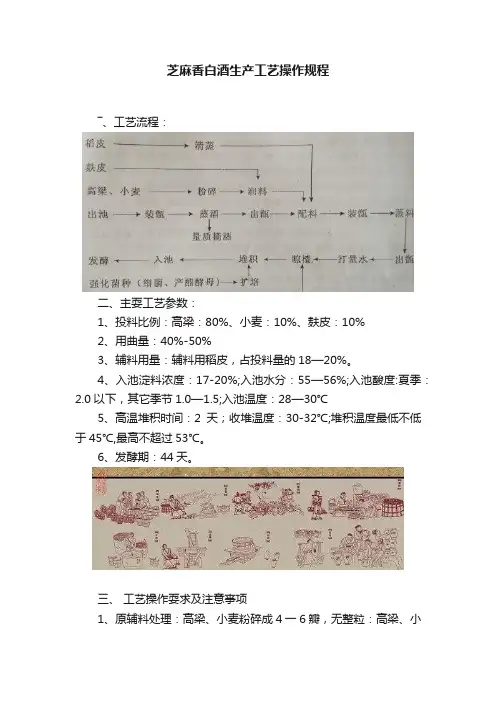 芝麻香白酒生产工艺操作规程
一、工艺流程：
稻皮 清蒸
麸皮
高粱、小麦 粉碎 润料
出池 装甑 蒸酒 出甑 配料 装甑 蒸料
量质摘酒
发酵 入池 堆积 晾糙 打量水 出甑
强化菌种（细菌、产酯酵母） 扩培
二、主要工艺参数：
1、投料比例：高梁：80%、小麦：10%、麸皮：10%
2、用曲量：40%-50%
3、辅料用量：辅料用稻皮，占投料量的18—20%。
4、入池淀料浓度：17-20%;入池水分：55—56%;入池酸度:夏季：
2.0以下，其它季节1.0—1.5;入池温度：28—30℃
5、高温堆积时间：2天；收堆温度：30-32℃;堆积温度最低不低
于45℃,最高不超过53℃。
6、发酵期：44天。
三、 工艺操作要求及注意事项
1、原辅料处理：高梁、小麦粉碎成4一6瓣，无整粒：高梁、小